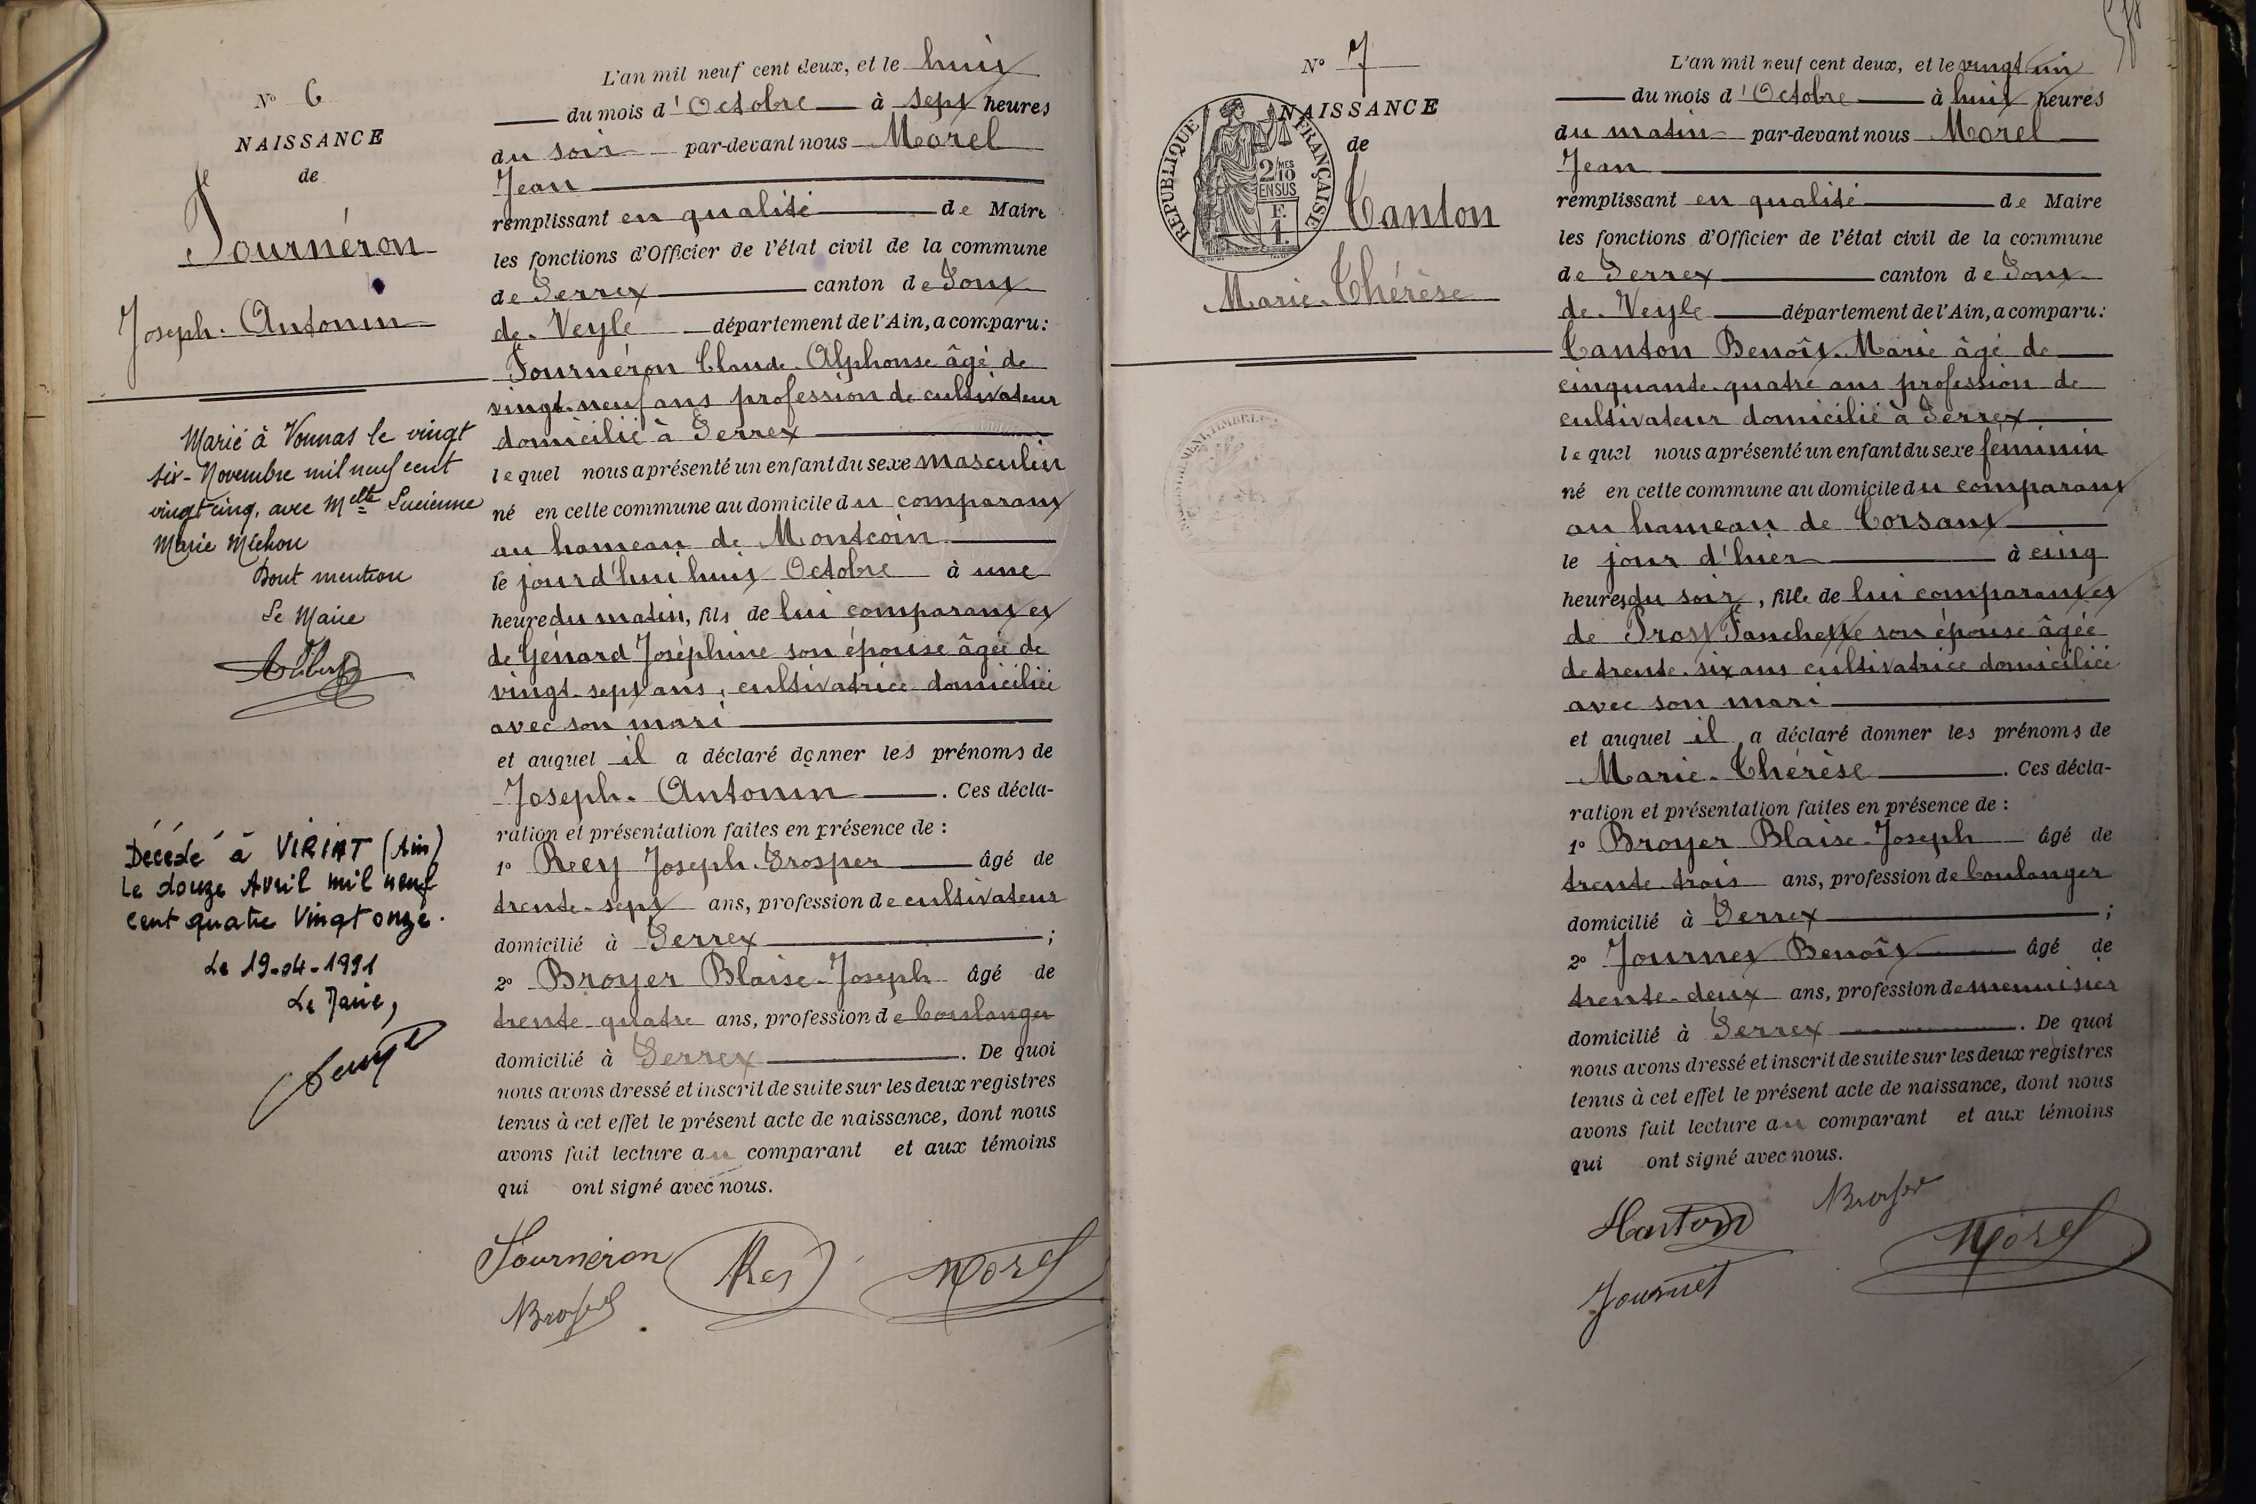 N° 6
NAISSANCE
de
Fournéron
Joseph. Antonin
Marié à Vonnas le vingt
six - Novembre mil neuf cent
vingt cinq, avec Melle Lucienne
Marie Méchou
Dont mention
Le Maire
Décédé à VIRIAT (Ain)
Le douze Avril mil neuf
cent quatre Vingt onze.
Le 19-04-1991
Le Maire,
L'an mil neuf cent deux, et le huit
du mois d'Octobre à sept heures
du soir par-devant nous Morel
Jean
remplissant en qualité de Maire
les fonctions d'Officier de l'état civil de la commune
de Perrex canton de Pont
de Veyle département de l'Ain, a comparu:
Fournéron Claude Alphonse âgé de
vingt-neuf ans profession de cultivateur
domicilié à Perrex
lequel nous a présenté un enfant du sexe masculin
né en cette commune au domicile du comparant
au hameau de Montcoin
le jourd'hui huit Octobre à une
heure du matin, fils de lui comparant et
de Génard Joséphine son épouse âgée de
vingt-sept ans, cultivatrice domiciliée
avec son mari
et auquel il a déclaré donner les prénoms de
Joseph. Antonin. Ces décla-
ration et présentation faites en présence de :
1° Recy Joseph. Prosper âgé de
trente-sept ans, profession de cultivateur
domicilié à Perrex ;
2° Broyer Blaise-Joseph âgé de
trente quatre ans, profession de boulanger
domicilié à Perrex. De quoi
nous avons dressé et inscrit de suite sur les deux registres
tenus à cet effet le présent acte de naissance, dont nous
avons fait lecture au comparant et aux témoins
qui ont signé avec nous.
Fournéron Morel
Broyer
N° 7
NAISSANCE
de
RÉPUBLIQUE FRANÇAISE
2/10 MES
EN SUS
F.
1.
Canton
Marie-Thérèse
L'an mil neuf cent deux, et le vingt un
du mois d'Octobre à huit heures
du matin par-devant nous Morel
Jean
remplissant en qualité de Maire
les fonctions d'Officier de l'état civil de la commune
de Perrex canton de Pont
de Veyle département de l'Ain, a comparu:
Canton Benoît-Marie âgé de
cinquante-quatre ans profession de
cultivateur domicilié à Perrex
lequel nous a présenté un enfant du sexe féminin
né en cette commune au domicile du comparant
au hameau de Corsant
le jour d'hier à cinq
heures du soir, fille de lui comparant et
de Prost Fanchette son épouse âgée
de trente-six ans cultivatrice domiciliée
avec son mari
et auquel il a déclaré donner les prénoms de
Marie-Thérèse. Ces décla-
ration et présentation faites en présence de :
1° Broyer Blaise-Joseph âgé de
trente-trois ans, profession de boulanger
domicilié à Perrex ;
2° Journet Benoît âgé de
trente-deux ans, profession de menuisier
domicilié à Perrex. De quoi
nous avons dressé et inscrit de suite sur les deux registres
tenus à cet effet le présent acte de naissance, dont nous
avons fait lecture au comparant et aux témoins
qui ont signé avec nous.
Canton Broyer
Morel
Journet